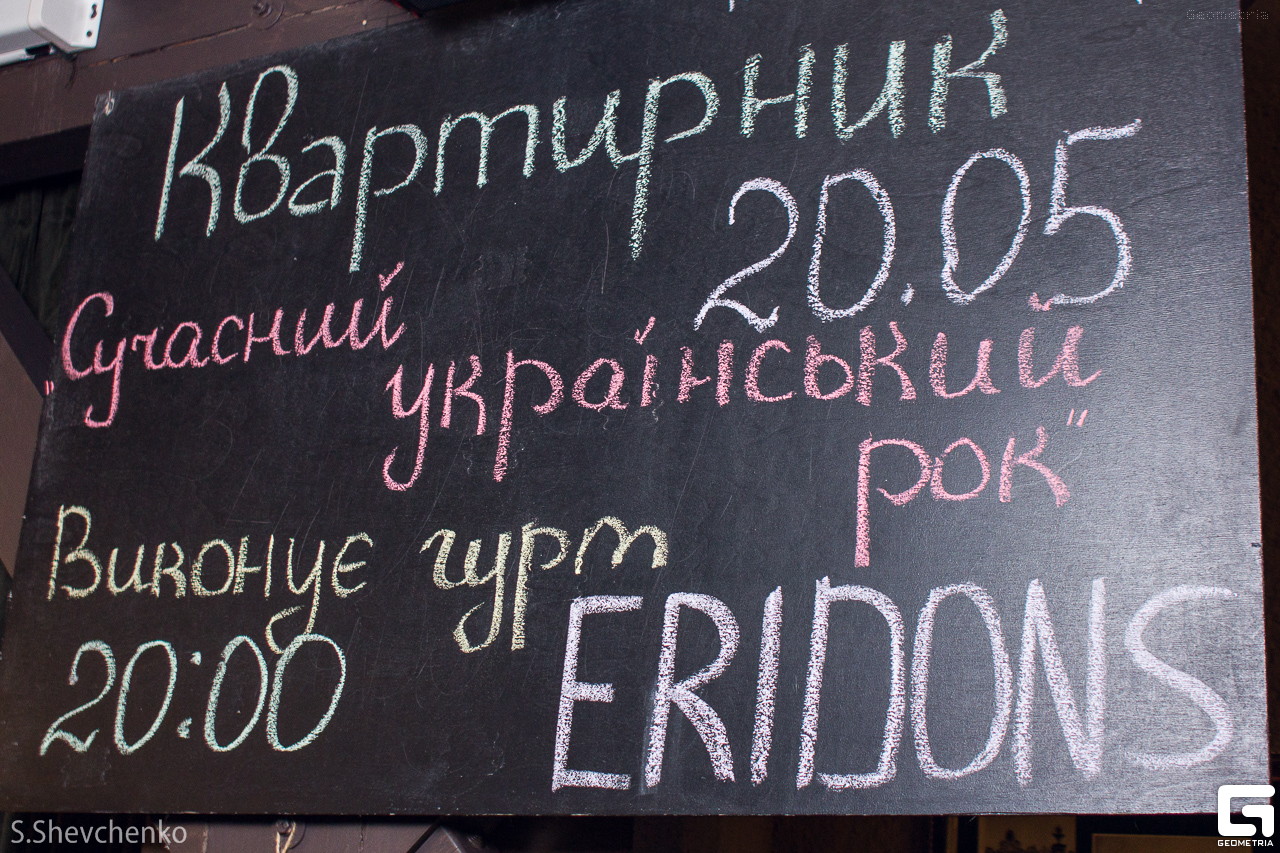 Geometria
Квартирник
20.05
„Сучасний
український
рок"
Виконує гурт
20:00
ERIDONS
S.Shevchenko
G
GEOMETRIA